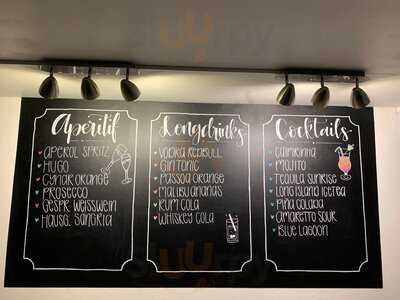 Aperitif
APEROL SPRITZ
HUGO
CYNAR ORANGE
PROSECCO
GESPR. WEISSWEIN
HAUSG. SANGRIA
Longdrinks
VODKA REDBULL
GIN TONIC
PASSOA ORANGE
MALIBU ANANAS
RUM COLA
WHISKEY COLA
Cocktails
CAIPIRINHA
MOJITO
TEQUILA SUNRISE
LONG ISLAND ICETEA
PIÑA COLADA
AMARETTO SOUR
BLUE LAGOON